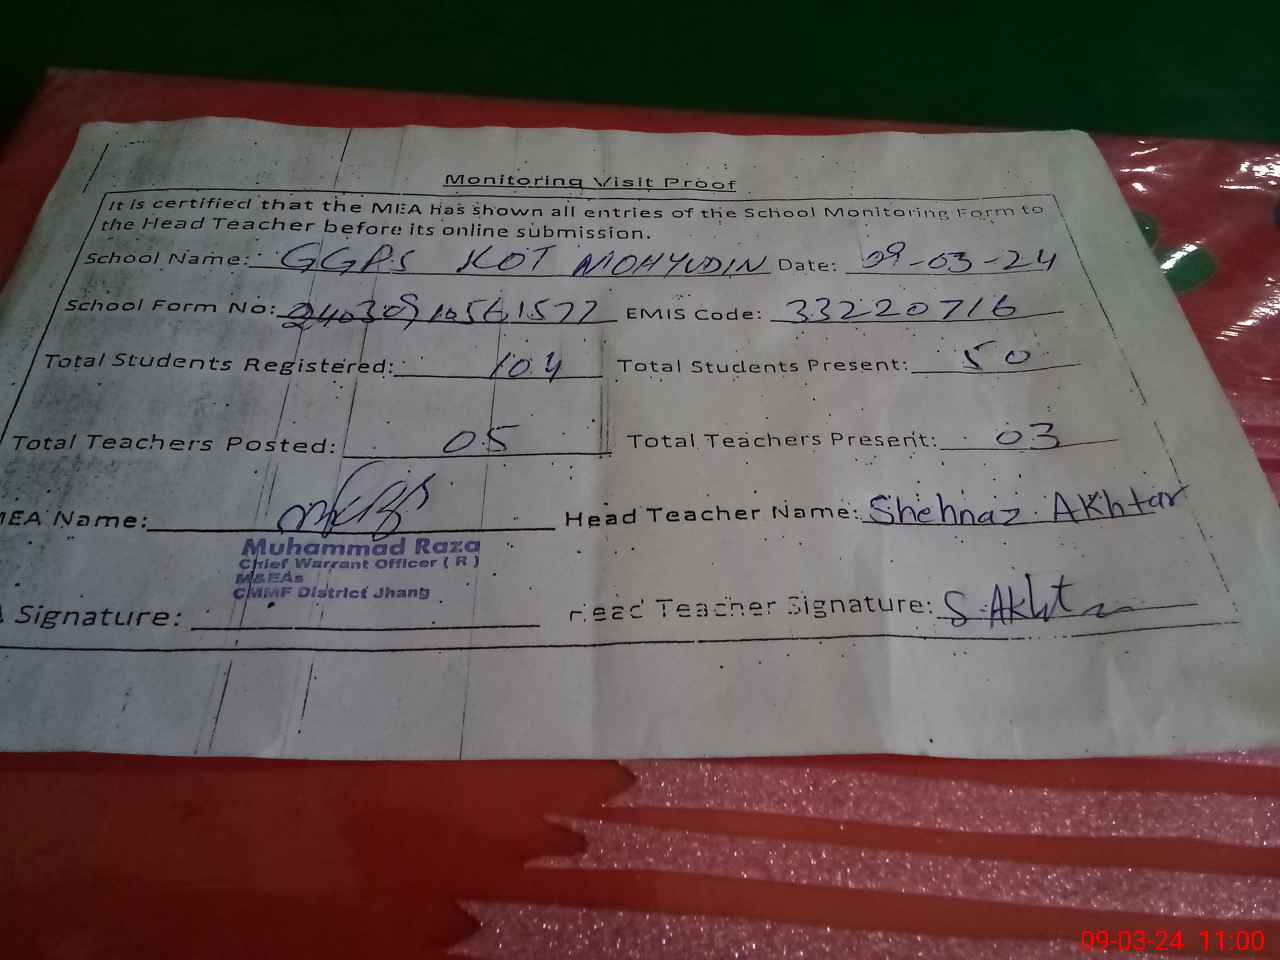 Monitoring Visit Proof
It is certified that the MEA has shown all entries of the School Monitoring Form to
the Head Teacher before its online submission.
School Name: GGPS KOT MOHYUDIN Date: 09-03-24
School Form No: 24030910561577 EMIS Code: 33220716
Total Students Registered: 104 Total Students Present: 50
Total Teachers Posted: 05 Total Teachers Present: 03
MEA Name: Head Teacher Name: Shehnaz Akhtar
Muhammad Raza
Chief Warrant Officer ( R )
M&EAs
CMMF District Jhang
Signature: Head Teacher Signature: S. Akht
09-03-24 11:00